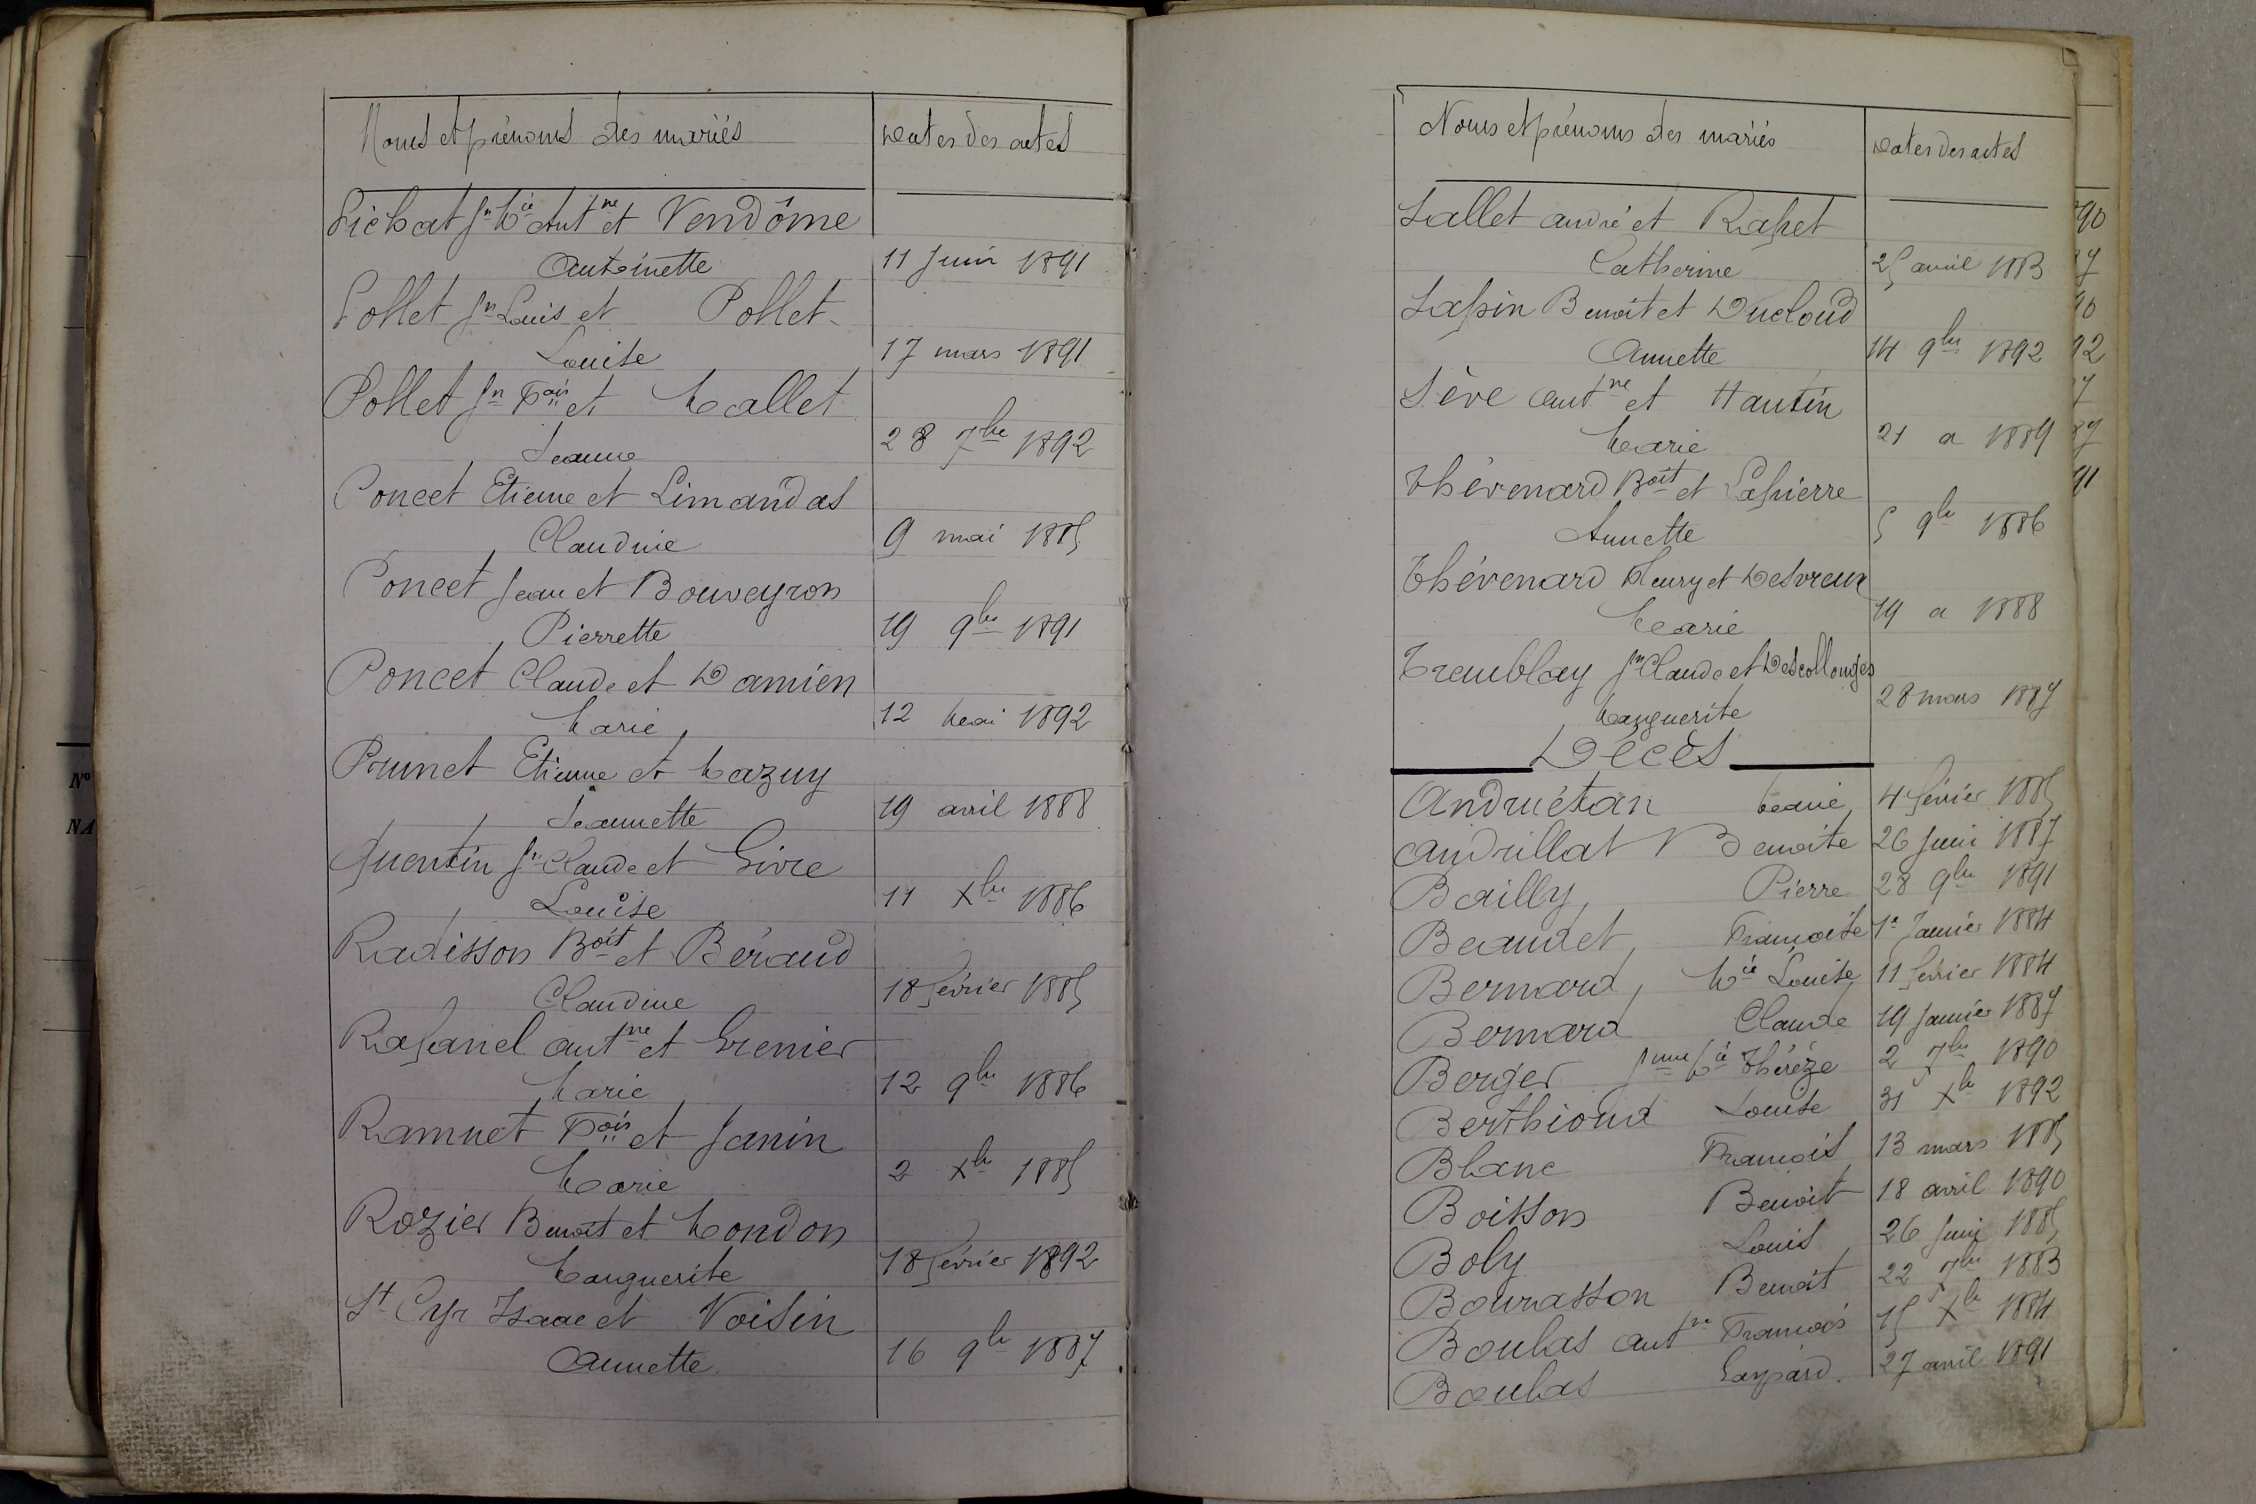 Noms et prénoms des mariés
Dates des actes
Pichat Jn Mie Antne et Vendôme
Antoinette
11 Juin 1891
Pollet Jn Louis et Pollet
Louise
17 mars 1891
Pollet Jn Fçois et Mallet
Jeanne
28 7bre 1892
Poncet Etienne et Limandas
Claudine
9 mai 1885
Poncet Jean et Bouveyron
Pierrette
19 9bre 1891
Poncet Claude et Damien
Marie
12 Mai 1892
Prunet Etienne et Mazuy
Jeannette
19 avril 1888
Quentin Jn Claude et Givre
Louise
11 Xbre 1886
Radisson Boit et Béraud
Claudine
18 février 1885
Rafanel antne et Grenier
Marie
12 9bre 1886
Ramuet Fçois et Janin
Marie
2 Xbre 1885
Rozier Benoît et Mondon
Marguerite
18 février 1892
St Cyr Isaac et Voisin
Annette
16 9bre 1887
Noms et prénoms des mariés
Dates des actes
Sallet andré et Rapet
Catherine
25 avril 1883
Sapin Benoit et Ducloud
Annette
14 9bre 1892
Sève antne et Hautin
Marie
21 a 1889
Thévenard Boit et Lapierre
Annette
5 9bre 1886
Thévenard Fleury et Desvreux
Marie
19 a 1888
Tremblay Jn Claude et Descollonges
Marguerite
28 mars 1887
Décès
Andruétan Marie 4 février 1885
Andrillat Benoite 26 Juin 1887
Bailly Pierre 28 9bre 1891
Beaudet Françoise 1er Janvier 1884
Bernard, Mie Louise 11 février 1884
Bernard Claude 19 Janvier 1887
Berger Jnne Mie Thérèze 2 7bre 1890
Berthioud Louise 31 Xbre 1892
Blanc François 13 mars 1885
Boisson Benoit 18 avril 1890
Boly Louis 26 Juin 1885
Bourasson Benoit 22 7bre 1883
Boulas antne François 15 Xbre 1884
Boulas Gaspard. 27 avril 1891
90
87
90
92
7
87
91
No
NA